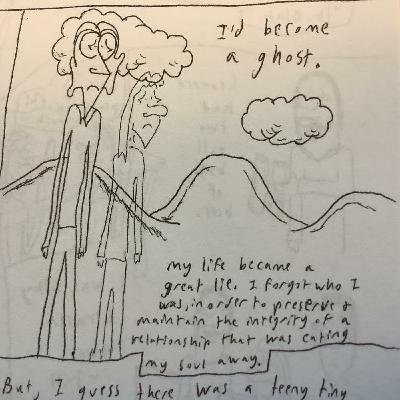 I'd become
a ghost.
my life became a
great lie. I forgot who I
was, in order to preserve &
maintain the integrity of a
relationship that was eating
my soul away.
But, I guess there was a teeny tiny